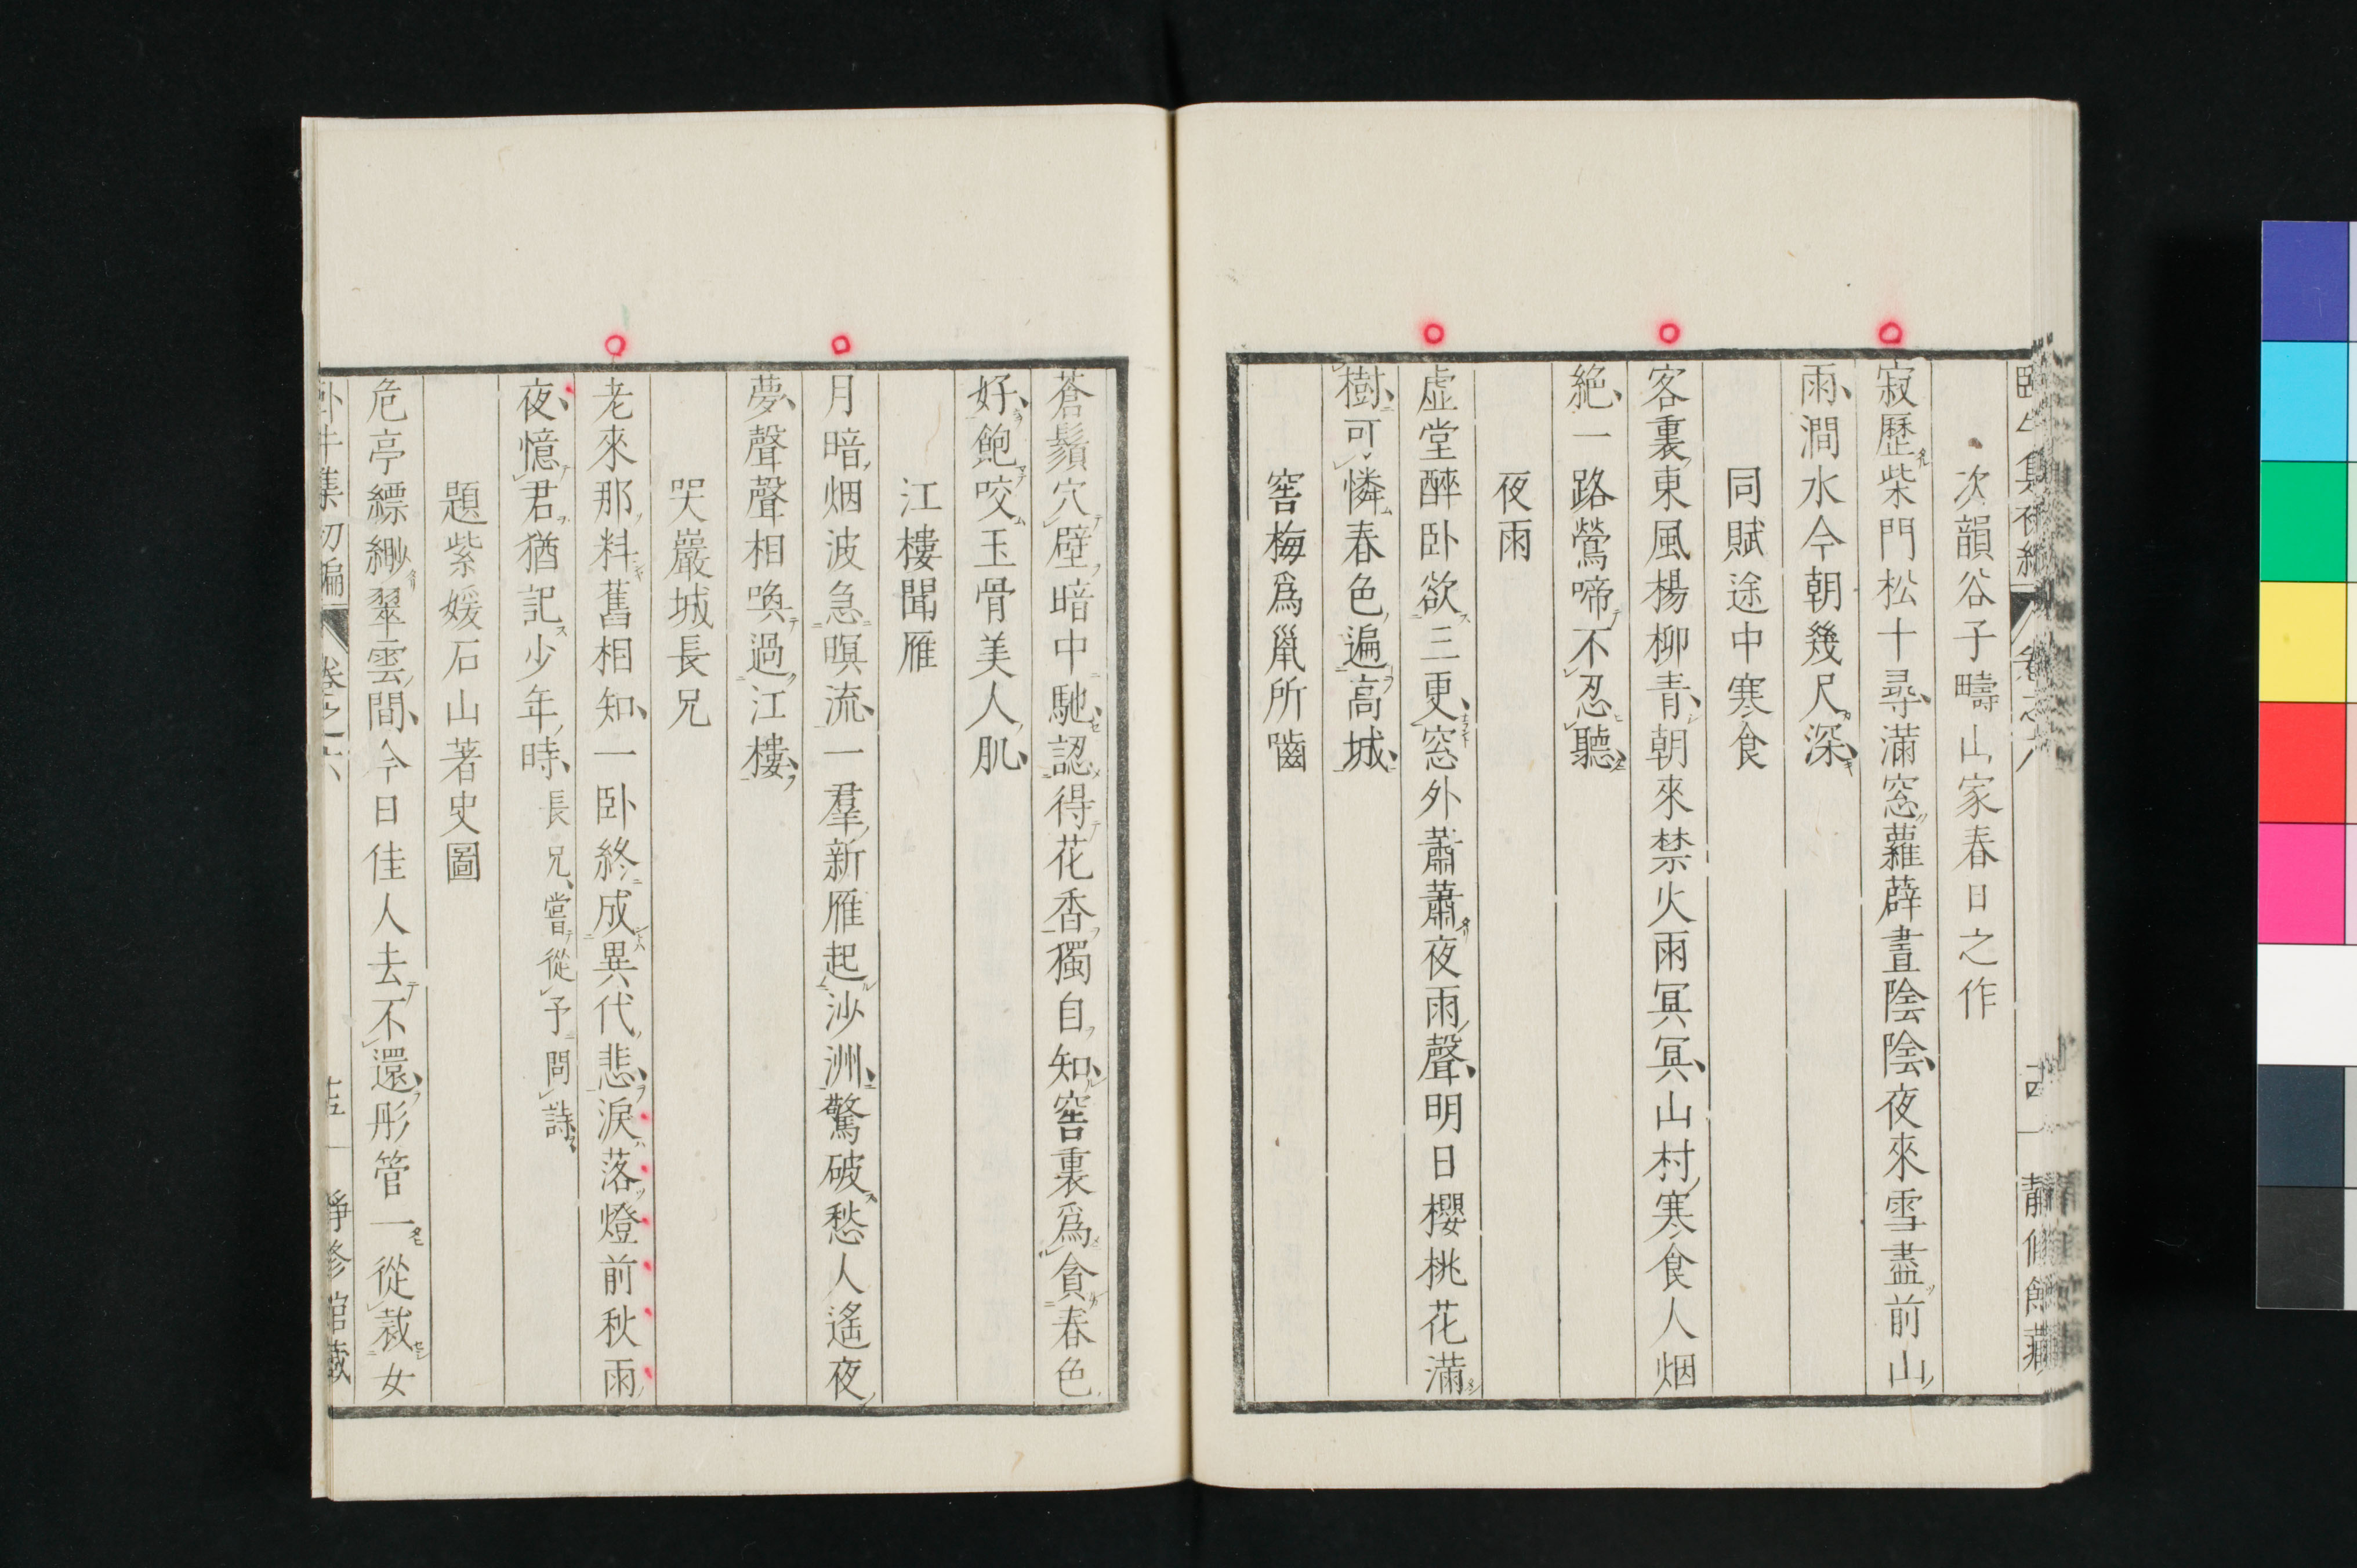 次韻谷子疇山家春日之作
寂歷柴門松十尋滿窓蘿薜晝陰陰夜來雪盡前山
雨澗水今朝幾尺深
同賦途中寒食
客裏東風楊柳青朝來禁火雨冥冥山村寒食人烟
絕一路鶯啼不忍聽
夜雨
虛堂醉卧欲三更窓外蕭蕭夜雨聲明日櫻桃花滿
樹可憐春色遍高城
窖梅爲鼠所嚙
蒼鬚穴壁暗中馳認得花香獨自知窖裏爲貪春色
好飽咬玉骨美人肌
江樓聞雁
月暗烟波急暝流一羣新雁起沙洲驚破愁人遙夜
夢聲聲相喚過江樓
哭巖城長兄
老來那料舊相知一卧終成異代悲淚落燈前秋雨
夜憶君猶記少年時長兄嘗從予問詩
題紫媛石山著史圖
危亭縹緲翠雲間今日佳人去不還彤管一從裁女
卧牛集初編 卷之六 十五 靜修館藏